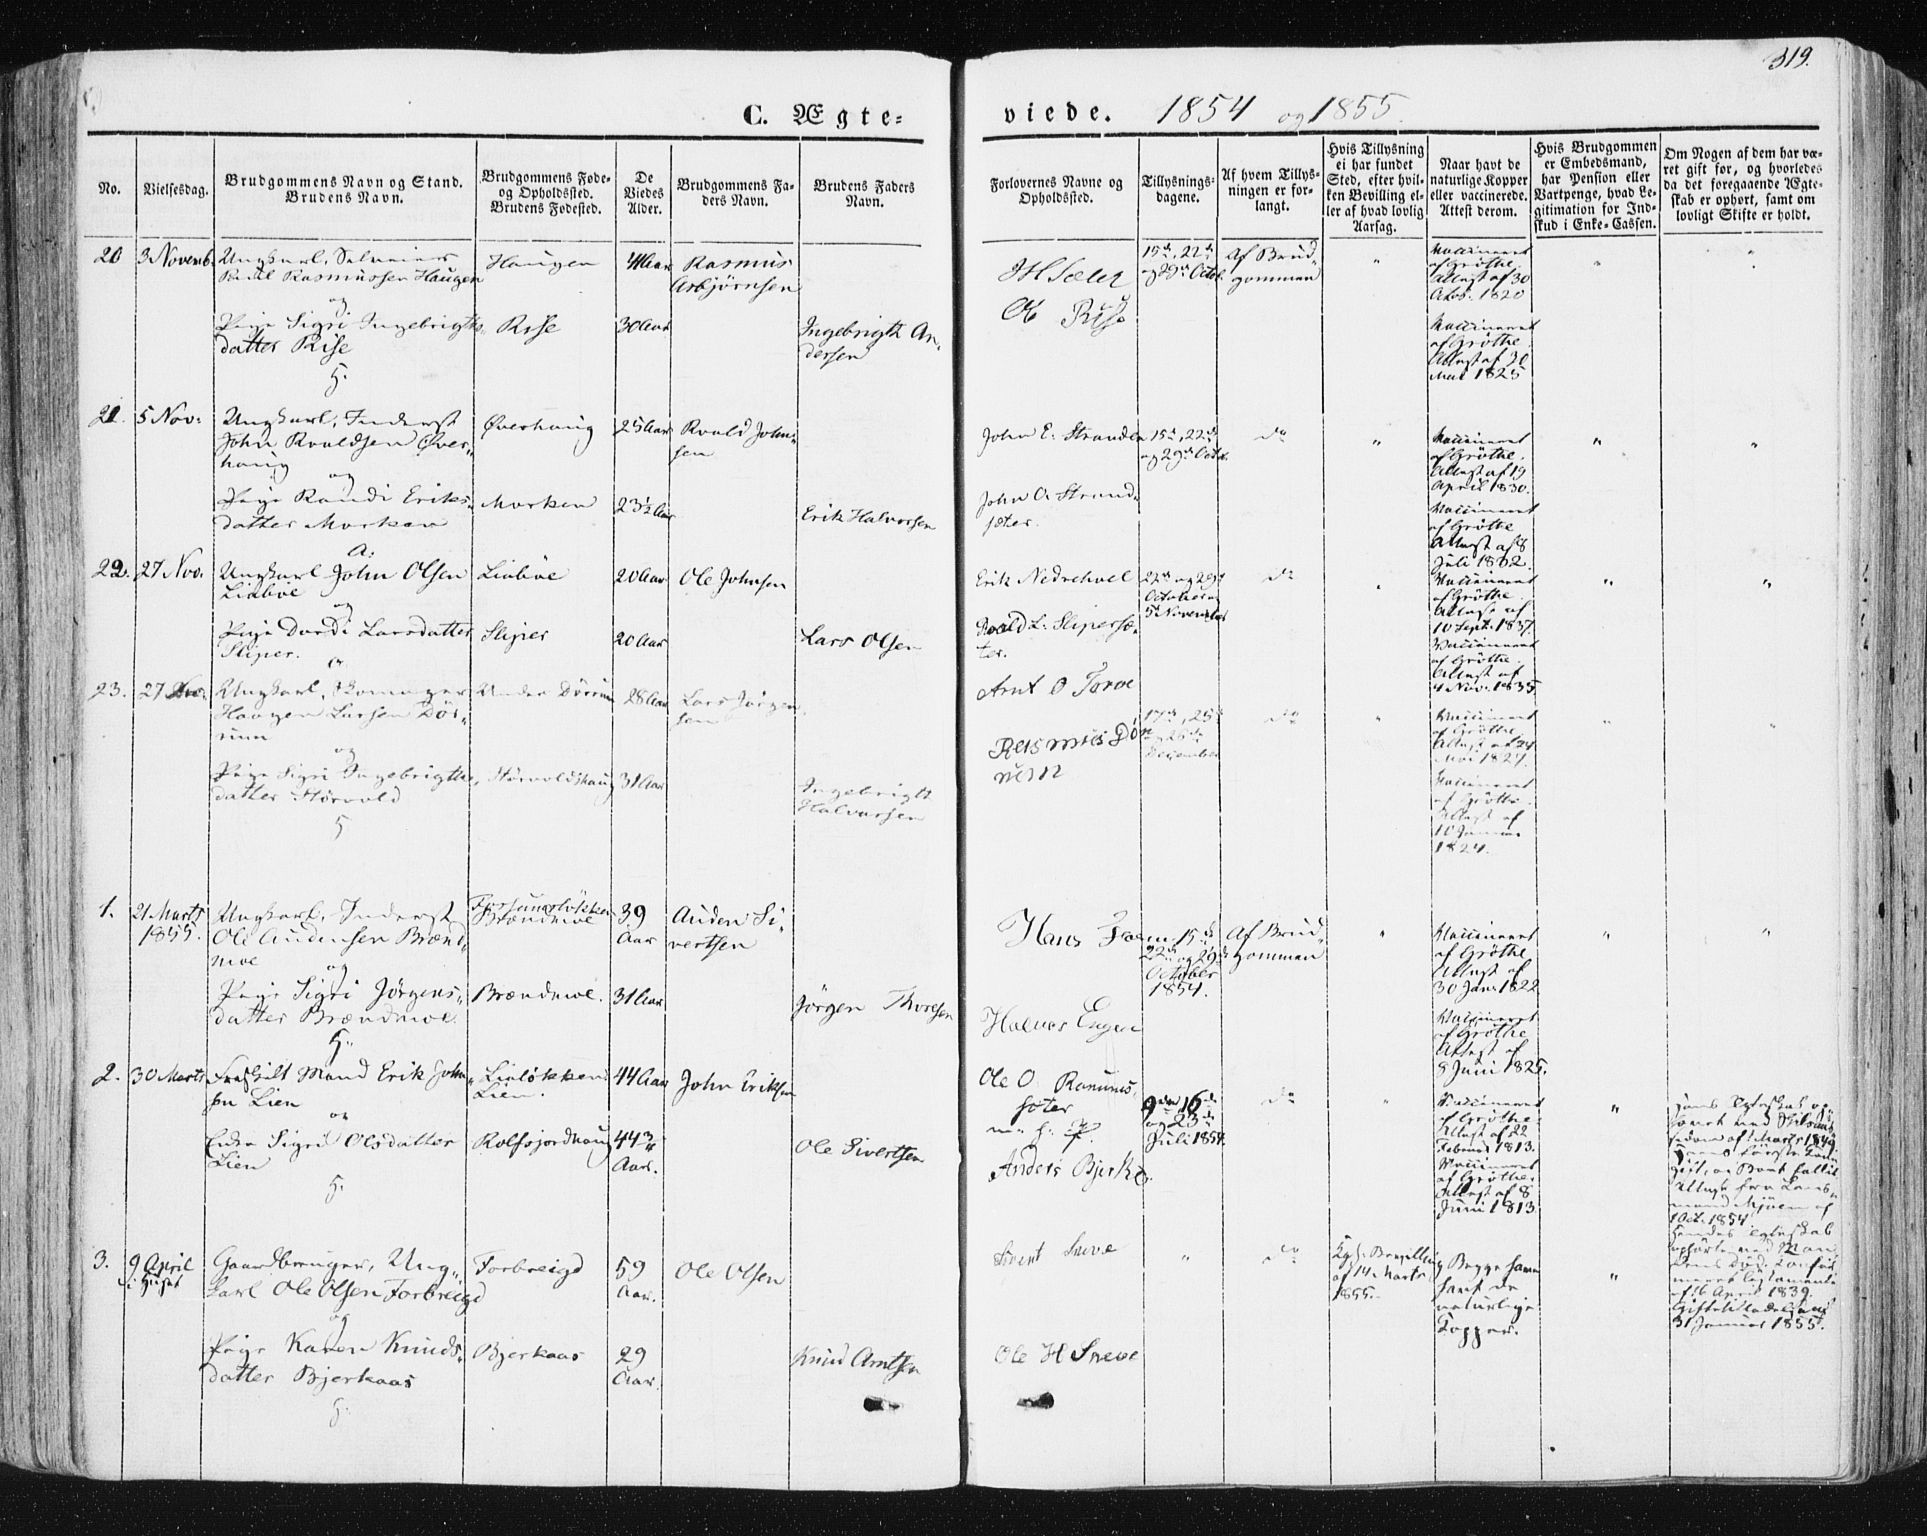 319.
C. Ægte-
viede. 1854 og 1855.
No.
Vielsesdag.
Brudgommens Navn og Stand.
Brudens Navn.
Brudgommens Føde-
og Opholdssted.
Brudens Fødested.
De
Viedes
Alder.
Brudgommens Fa-
ders Navn.
Brudens Faders
Navn.
Forlovernes Navne og
Opholdssted.
Tillysnings-
dagene.
Af hvem Tillys-
ningen er for-
langt.
Hvis Tillysning
ei har fundet
Sted, efter hvil-
ken Bevilling el-
ler af hvad lovlig
Aarsag.
Naar havt de
naturlige Kopper
eller vaccinerede.
Attest derom.
Hvis Brudgommen
er Embedsmand,
har Pension eller
Vartpenge, hvad Le-
gitimation for Ind-
skud i Enke-Cassen.
Om Nogen af dem har væ-
ret gift før, og hvorledes
da det foregaaende Ægte-
skab er ophørt, samt om
lovligt Skifte er holdt.
20
3 Novemb.
Ungkarl,
Rasmussen Haugen
og
Pige Sigri Ingebrigts-
datter Rise
Haugen
Rise
41 Aar
30 Aar
Rasmus
Asbjørnsen
Ingebrigt An-
dersen
Rise
15de, 22de
og 29de Octob.
Af Brud-
gommen
Vaccineret
af Grøthe.
Attest af 30
1820
Vaccineret
af Grøthe.
Attest af 30
Mai 1825
21.
5 Nov.
Ungkarl, Inderst
John Roaldsen Øver-
haug
og
Pige Randi Eriks-
datter Morken
Øverhaug
Morken
25 Aar
23½ Aar
Roald John-
sen
Erik Halvorsen
John E. Strande
John O. Strand-
sæter.
15de, 22de
og 29de Octob.
do
Vaccineret
af Grøthe.
Attest af 19
April 1830.
Vaccineret
af Grøthe
Attest af 8
Juli 1832.
22.
27 Nov.
Ungkarl John Olsen
Liabøe
og
Pige Dordi Larsdatter
Sliper.
Liabøe
Sliper
20 Aar
20 Aar
Ole Johnsen
Lars Olsen
Erik Nedrehoel
Roald L. Slipersæ-
ter.
22de og 29de
October og
5te November
do
Vaccineret
af Grøthe.
Attest af
10 Sept. 1837.
Vaccineret
af Grøthe
Attest af
4 Nov. 1835
23.
27 Dec.
Ungkarl,
Haagen Larsen Dør-
rum
og
Pige Sigri Ingebrigts-
datter Størvold
28 Aar
31 Aar
Lars Jørgen-
sen
Ingebrigt
Halvorsen
Arnt O Torve
Rasmus Dør
rum
December
do
Vaccineret
af Grøthe
Attest af 24
Mai 1827.
Vaccineret
af Grøthe.
Attest af
10 Januar
1824.
1.
21 Marts
1855.
Ungkarl, Inderst
Ole Audensen Brænd-
moe
og
Pige Sigri Jørgens-
datter Brændmoe.
Brændmoe
Brændmoe.
39
Aar
31 Aar
Auden Si-
vertsen
Jørgen Thoresen
Hans
Halvor Engen
15de
22de og 29de
October
1854.
Af Brud-
gommen
Vaccineret
af Grøthe
Attest af
30 Jan. 1822
Vaccineret
af Grøthe
Attest af
8 Juni 1825.
2.
30 Marts
Fraskilt Mand Erik John-
sen Lien
og
Enke Sigri Olsdatter
Lien
Lialøkken
Lien.
44 Aar
Aar.
John Eriksen
Ole Sivertsen
Ole O.
Anders Bjerke.
9de 16de
og 23de
Juli 1854.
do
Vaccineret
af Grøthe
Attest af 22
Februar 1813.
Vaccineret
af Grøthe
Attest af 8
Juni 1813
Hans Ægteskab
1 Oct. 1854
Hendes Ægteskab
ophørte ved Man-
dens Død.
af 16 April 1839.
31 Januar 1855.
3.
9 April
i Huset
Gaardbruger, Ung-
karl Ole Olsen Forbreigd
og
Pige Karen Knuds-
datter Bjerkaas
Forbreigd
Bjerkaas
59
Aar.
29
Aar.
Ole Olsen
Knud Arntsen
Sivert Sneve
Ole H Sneve
do
Kgl. Bevilling
af 14 Marts
1855.
Begge have
havt de
naturlige
Kopper.